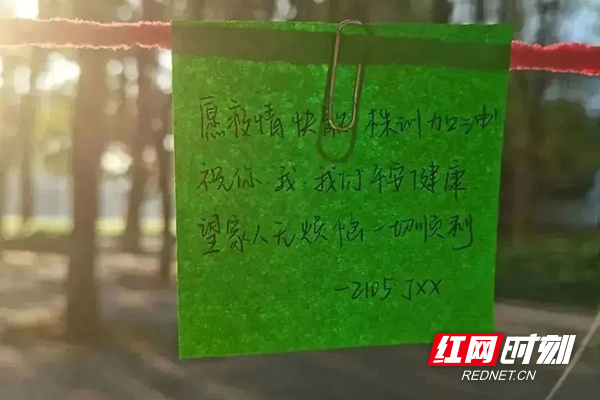 愿疫情快散，株洲加油！
祝你、我、我们平安健康
望家人无烦恼一切顺利
—2105 JXX
红网时刻
REDNET.CN